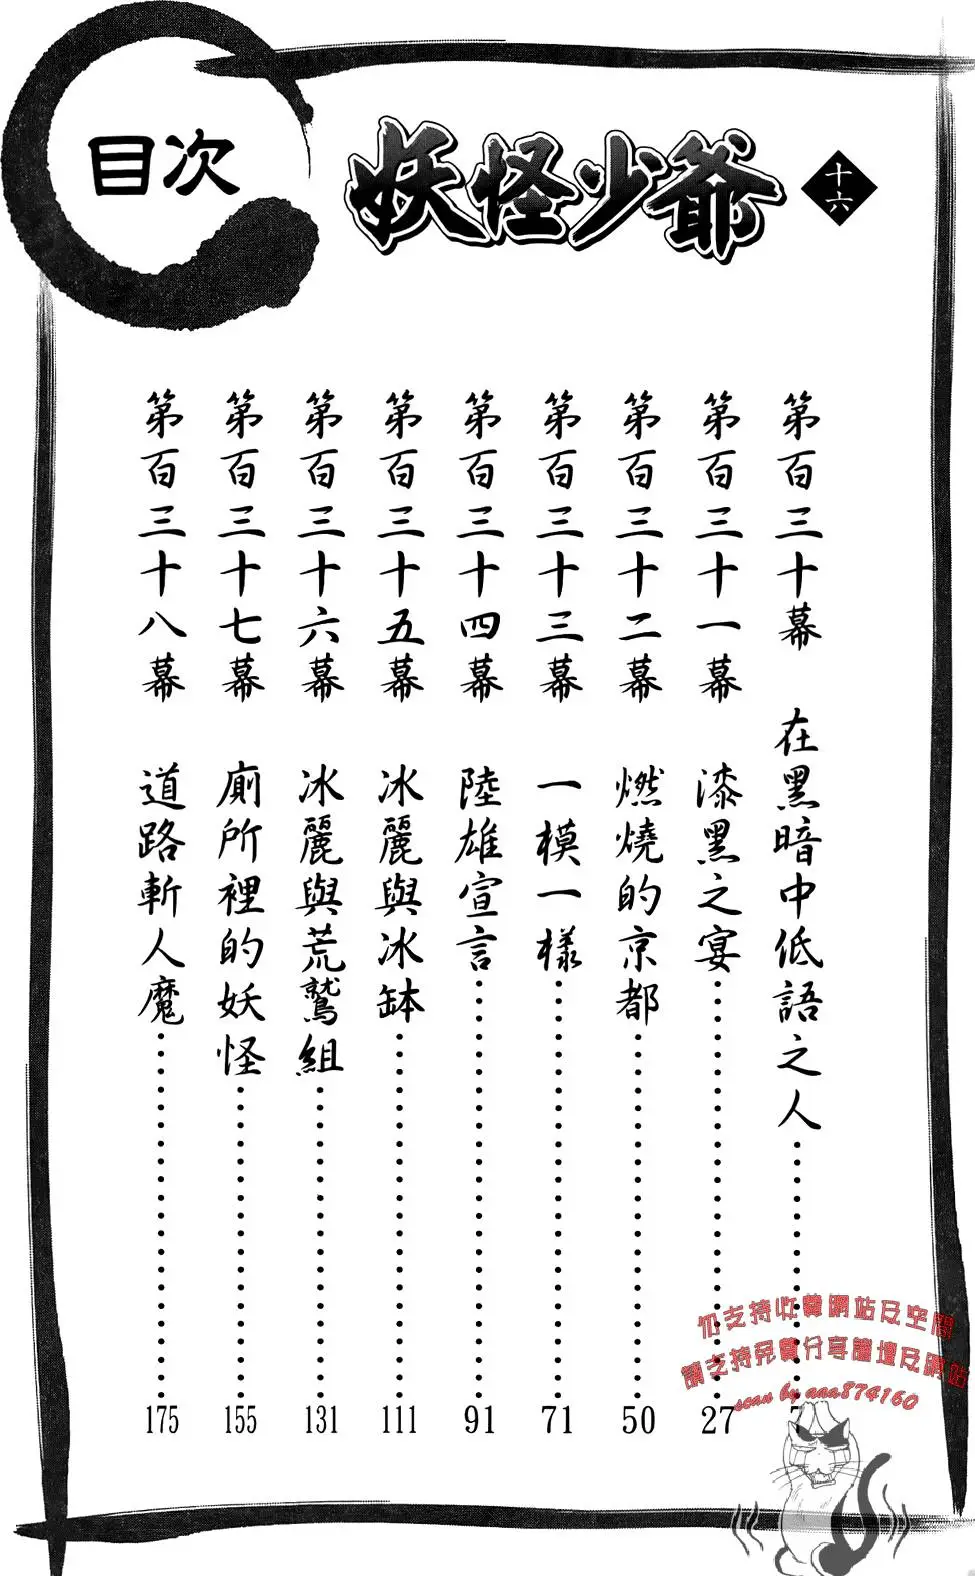 目次
妖怪少爺
十六
第百三十幕 在黑暗中低語之人
第百三十一幕 漆黑之宴 27
第百三十二幕 燃燒的京都 50
第百三十三幕 一模一樣 71
第百三十四幕 陸雄宣言 91
第百三十五幕 冰麗與冰缽 111
第百三十六幕 冰麗與荒鷲組 131
第百三十七幕 廁所裡的妖怪 155
第百三十八幕 道路斬人魔 175
支持收費網站及空間
請支持免費分享論壇及網站
scan by aaa874160